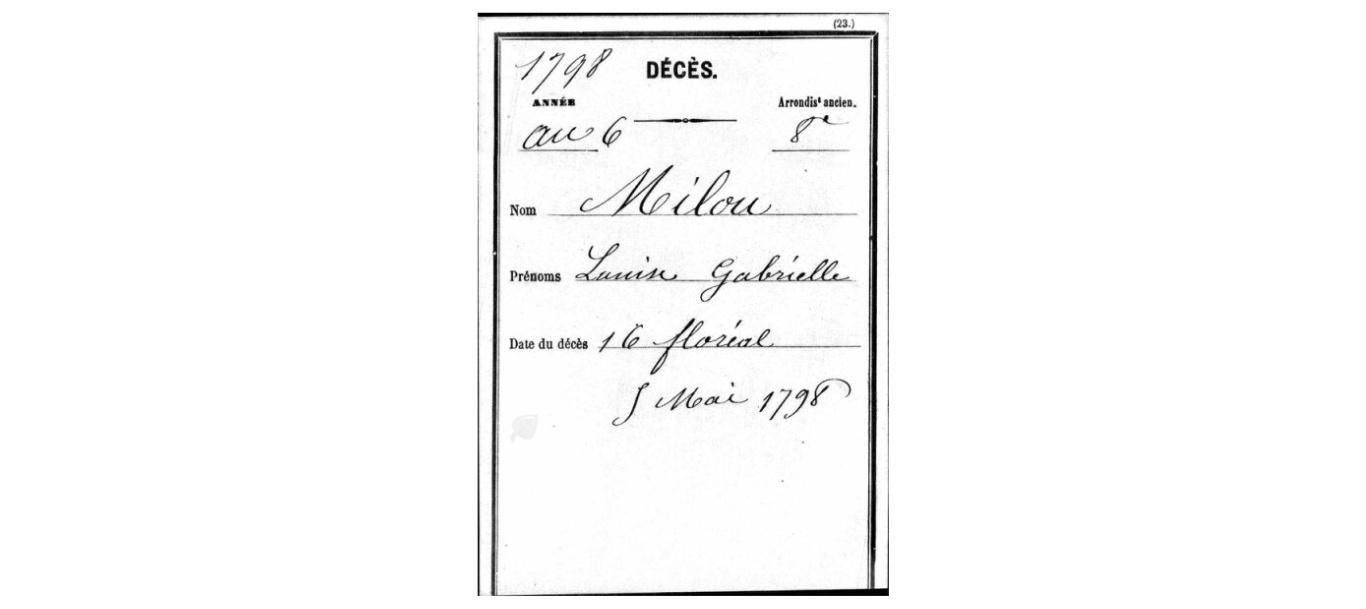 (23.)
1798 DÉCÈS.
ANNÉE Arrondis<sup>t</sup> ancien.
an 6 8<sup>e</sup>
Nom Milou
Prénoms Louise Gabrielle
Date du décès 16 floréal
5 Mai 1798